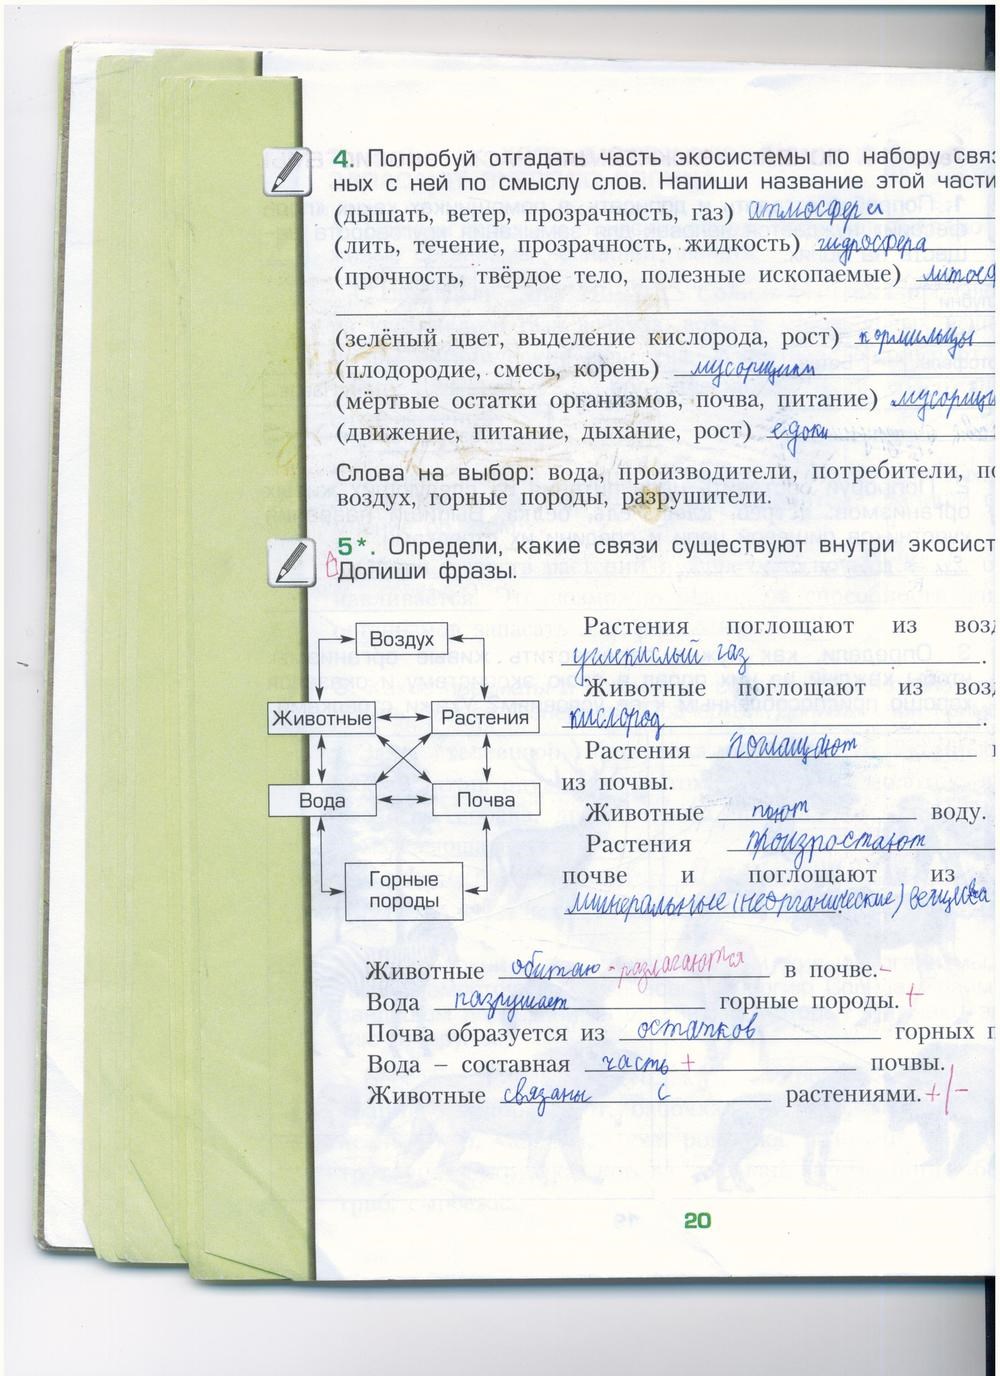 4. Попробуй отгадать часть экосистемы по набору связ
ных с ней по смыслу слов. Напиши название этой части
(дышать, ветер, прозрачность, газ) атмосфера
(лить, течение, прозрачность, жидкость) гидросфера
(прочность, твёрдое тело, полезные ископаемые) литосф
(зелёный цвет, выделение кислорода, рост) кормильцы
(плодородие, смесь, корень) мусорщики
(мёртвые остатки организмов, почва, питание) мусорщи
(движение, питание, дыхание, рост) едоки
Слова на выбор: вода, производители, потребители, по
воздух, горные породы, разрушители.
5*. Определи, какие связи существуют внутри экосист
Допиши фразы.
Воздух
Животные
Растения
Вода
Почва
Горные
породы
Растения поглощают из возд
углекислый газ .
Животные поглощают из возд
кислород
Растения поглащают
из почвы.
Животные пют воду.
Растения произростают
почве и поглощают из
минеральные (неорганические) вещества .
Животные обитаю - разлагаются в почве. -
Вода разрушает горные породы. +
Почва образуется из остатков горных п
Вода – составная часть + почвы.
Животные связаны с растениями. + / -
20